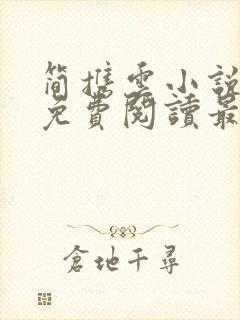 简携雪小說
免費閱讀最
倉地千尋